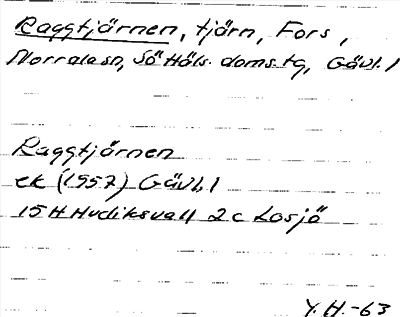 Raggtjärnen, tjärn, Fors,
Norrala sn, Sö Häls. doms. tg, Gävl. l
Raggtjärnen
ek (1957) Gävl. l
15 H Hudiksvall 2 c Losjö
Y. H. -63